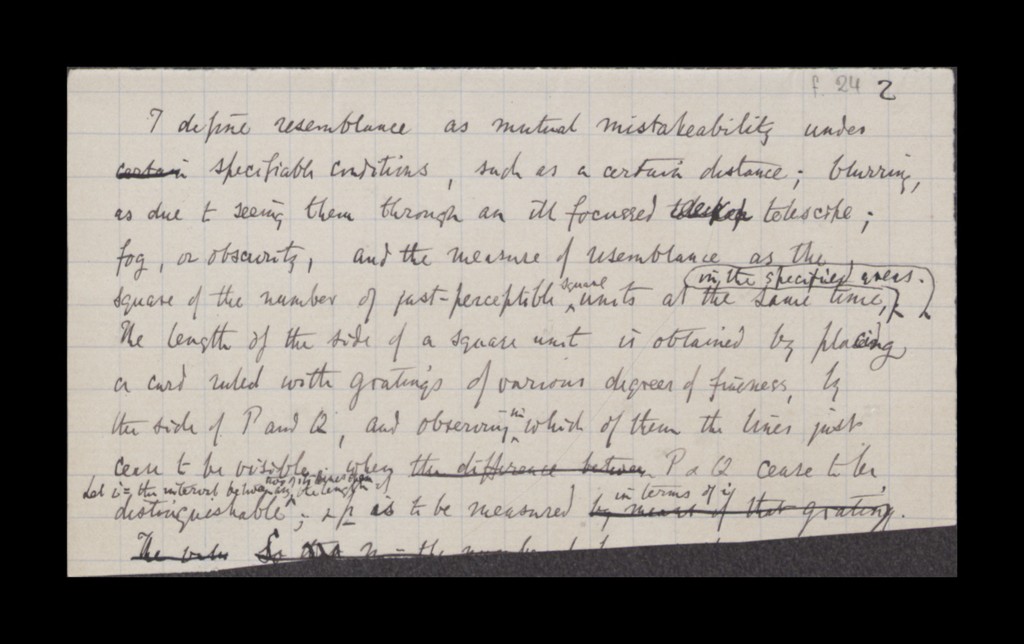 f. 24 2
I define resemblance as mutual mistakeability under
certain specifiable conditions, such as a certain distance; blurring,
as due to seeing them through an ill focussed telescope;
fog, or obscurity, and the measure of resemblance as the
in the specified areas.
square of the number of just-perceptible square units at the same time,
The length of the side of a square unit is obtained by placing
a card ruled with gratings of various degrees of fineness, by
the side of P and Q, and observing in which of them the lines just
cease to be visible, when the difference between P & Q cease to be
Let i = the interval between any two of its lines, the length of
in terms of i
distinguishable; & p is to be measured by means of that grating.
The value So n = the number